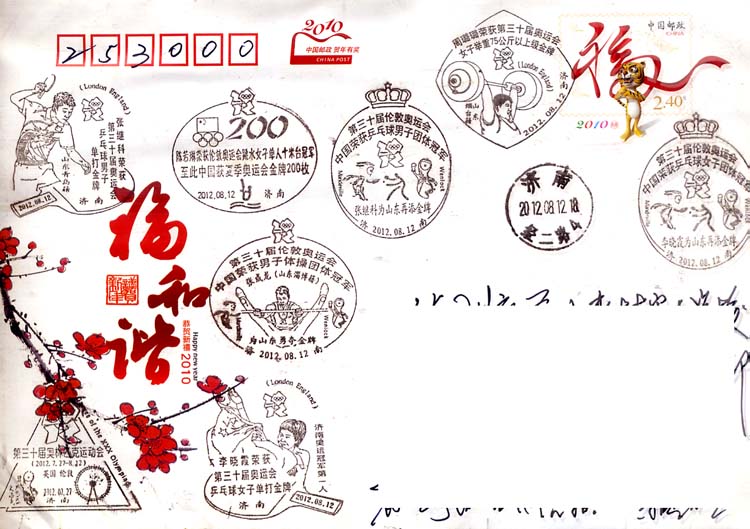 253000
2010
中国邮政 贺年有奖
CHINA POST
周璐璐荣获第三十届奥运会
女子举重75公斤以上级金牌
(London England)
山东烟台籍
济南
2012.08.12
中国邮政
CHINA
福
2.40元
2010
(London England)
张继科荣获
第三十届奥运会
乒乓球男子
单打金牌
山东青岛籍
2012.08.12
济南
200
陈若琳荣获伦敦奥运会跳水女子单人十米台冠军
至此中国获夏季奥运会金牌200枚
2012.08.12 济南
第三十届伦敦奥运会
中国荣获乒乓球男子团体冠军
Wenlock
张继科为山东再添金牌
济 2012.08.12 南
济南
2012.08.12.18
第三十届伦敦奥运会
中国荣获乒乓球女子团体冠军
Wenlock
李晓霞为山东再添金牌
济 2012.08.12 南
福和谐
恭贺新禧
Happy new year
2010
第三十届伦敦奥运会
中国荣获男子体操团体冠军
张成龙(山东淄博籍)
Wenlock
为山东勇夺金牌
济 2012.08.12 南
of the XXX Olympiad
第三十届奥林匹克运动会
(2012.7.27-8.12)
英国 伦敦
2012.07.27
济南
(London England)
李晓霞荣获
第三十届奥运会
乒乓球女子单打金牌
济南奥运冠军第一人
济南
2012.08.12